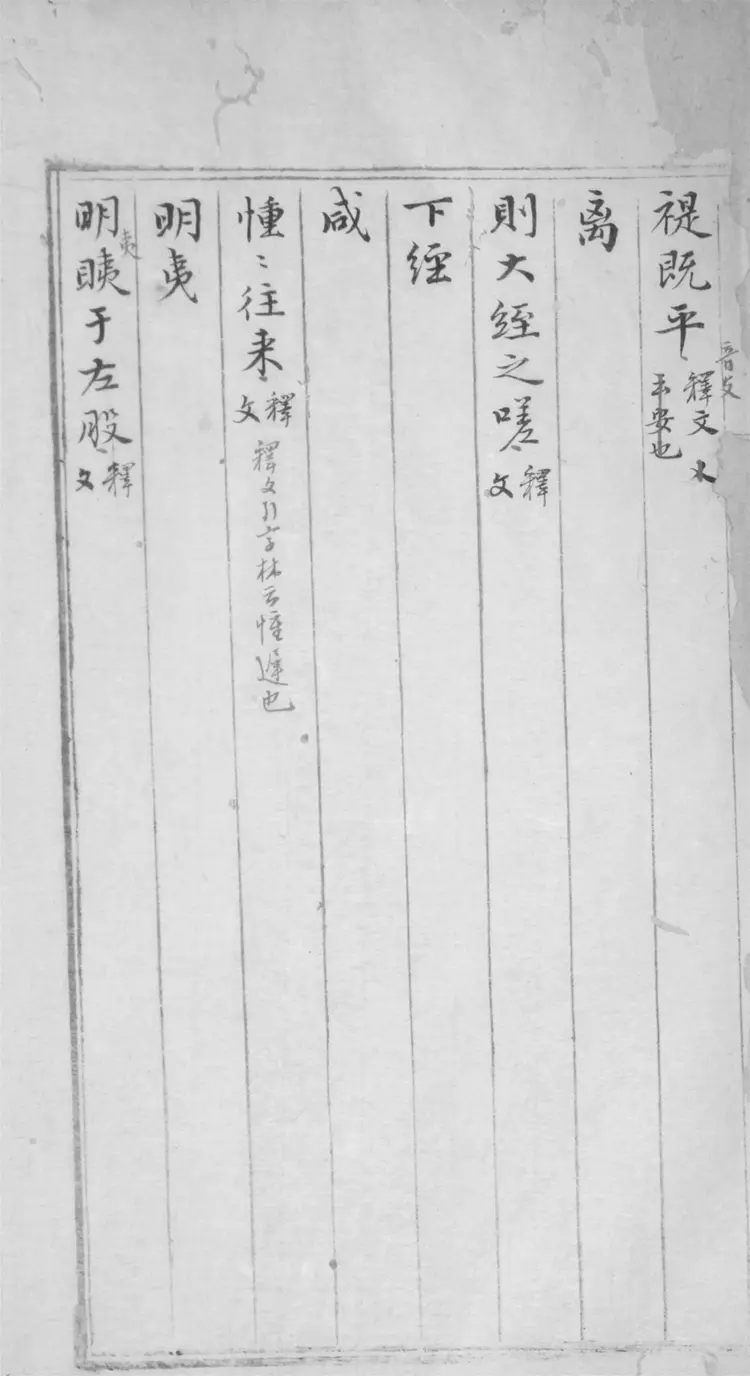 禔既平 釋文
安也
离
則大絰之嗟 釋文
下經
咸
憧〻往来 釋文 釋文引字林云憧遲也
明夷
明䀢于左股 釋文
夷